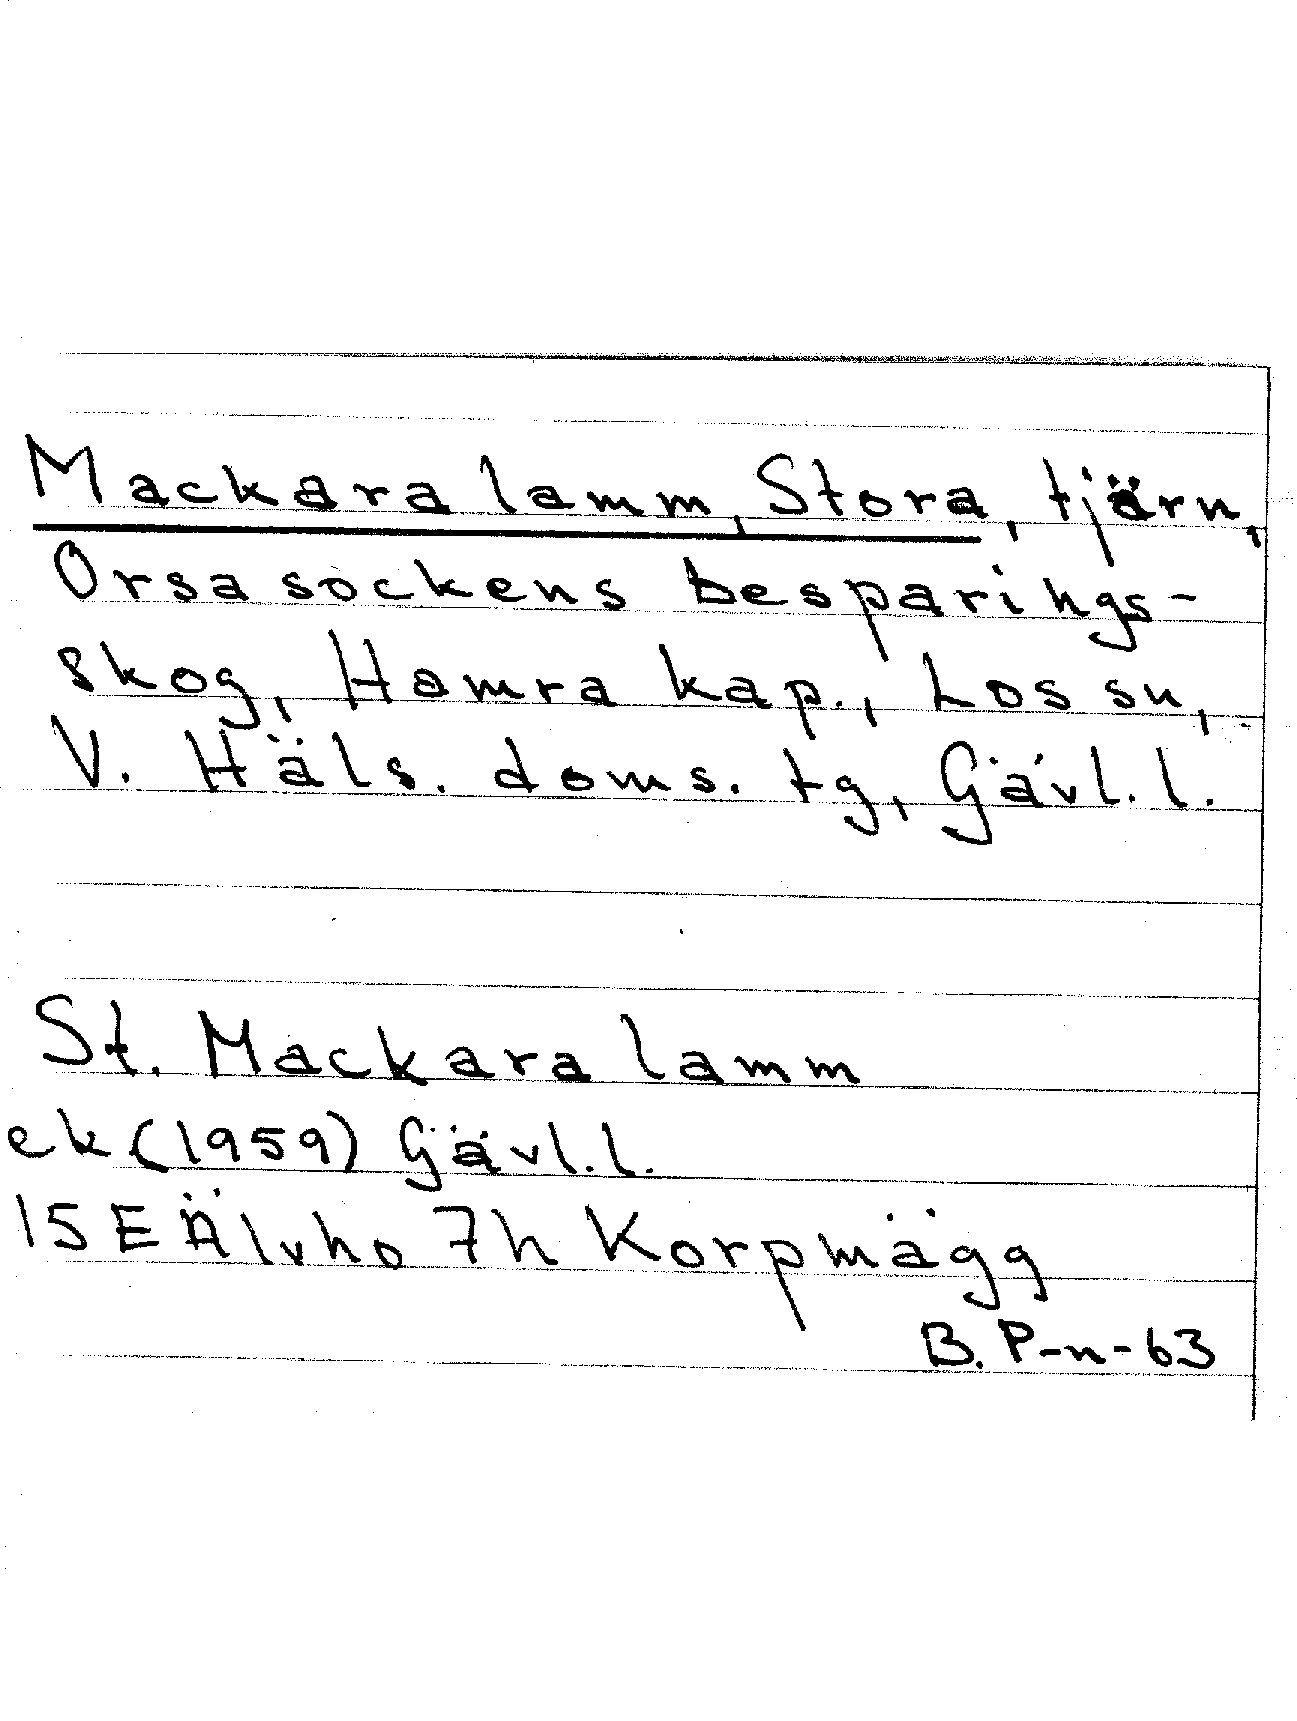 Mackara lamm, Stora, tjärn,
Orsa sockens besparings-
skog, Hamra kap., Los sn,
V. Häls. doms. tg, Gävl. l.
St. Mackara lamm
ek (1959) Gävl. l.
15 E Älvho 7h Korpmägg
B. P-n-63